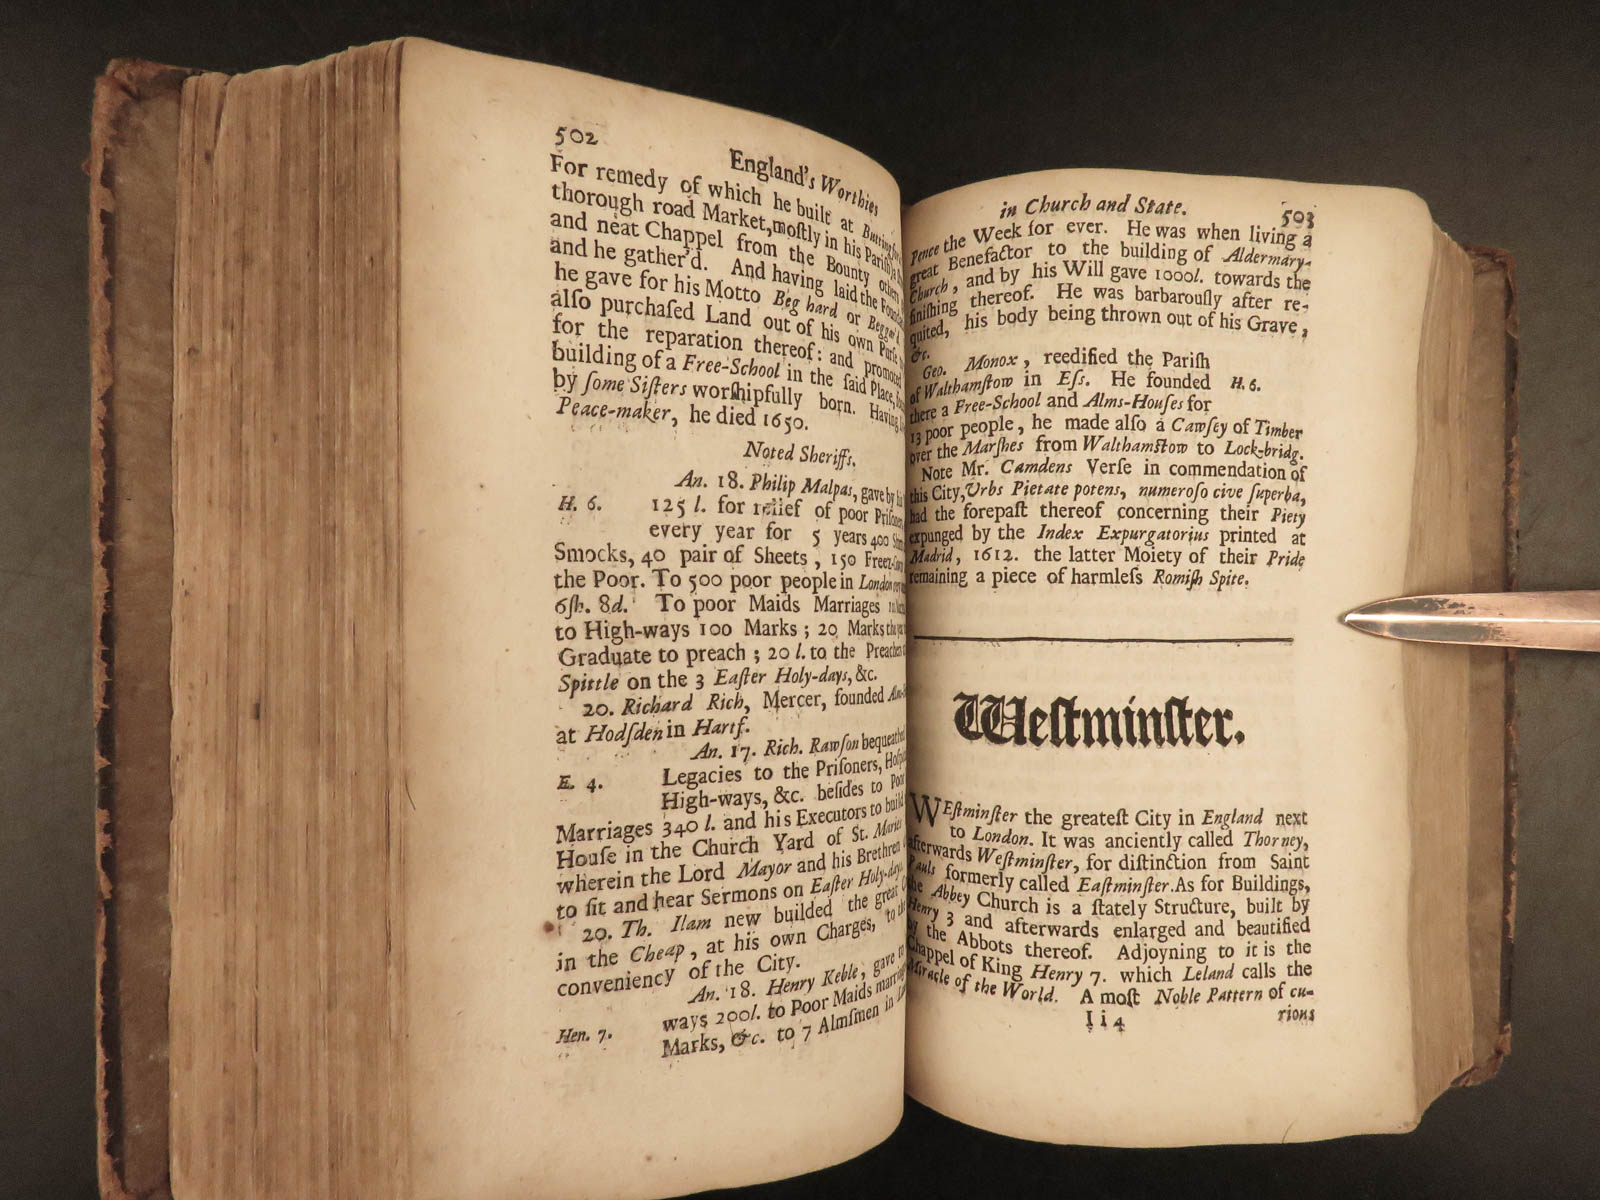 502
England's Worthies
For remedy of which he built at
thorough road Market, moſtly in his Pariſh
and neat Chappel from the Bounty others
and he gather'd. And having laid the
he gave for his Motto Beg hard or Beggar'd
alſo purchaſed Land out of his own Purſe
for the reparation thereof: and promoted
building of a Free-School in the ſaid Place,
by ſome Siſters worſhipfully born. Having
Peace-maker, he died 1650.
Noted Sheriffs.
An. 18. Philip Malpas, gave by his
H. 6. 125 l. for relief of poor
every year for 5 years 400
Smocks, 40 pair of Sheets, 150
the Poor. To 500 poor people in London
6ſh. 8d. To poor Maids Marriages
to High-ways 100 Marks; 20 Marks
Graduate to preach; 20 l. to the
Spittle on the 3 Eaſter Holy-days, &c.
20. Richard Rich, Mercer, founded
at Hodſden in Hartf.
An. 17. Rich. Rawſon bequeathed
E. 4. Legacies to the Priſoners,
High-ways, &c. beſides to Poor
Marriages 340 l. and his Executors to build
Houſe in the Church Yard of St. Maries
wherein the Lord Mayor and his Brethren
to ſit and hear Sermons on Eaſter Holy-days.
20. Th. Ilam new builded the great
in the Cheap, at his own Charges, to the
conveniency of the City.
An. 18. Henry Keble, gave to
Hen. 7. ways 200l. to Poor Maids
Marks, &c. to 7 Almſmen in
in Church and State. 503
Pence the Week for ever. He was when living a
great Benefactor to the building of Aldermary-
Church, and by his Will gave 1000l. towards the
finiſhing thereof. He was barbarouſly after re-
quited, his body being thrown out of his Grave,
&c.
Geo. Monox, reedified the Pariſh
of Walthamſtow in Eſs. He founded H. 6.
there a Free-School and Alms-Houſes for
13 poor people, he made alſo a Cawſey of Timber
over the Marſhes from Walthamſtow to Lock-bridg.
Note Mr. Camdens Verſe in commendation of
this City, Urbs Pietate potens, numeroſo cive ſuperba,
had the forepaſt thereof concerning their Piety
expunged by the Index Expurgatorius printed at
Madrid, 1612. the latter Moiety of their Pride
remaining a piece of harmleſs Romiſh Spite.
Weſtminſter.
WEſtminſter the greateſt City in England next
to London. It was anciently called Thorney,
afterwards Weſtminſter, for diſtinction from Saint
Pauls formerly called Eaſtminſter. As for Buildings,
the Abbey Church is a ſtately Structure, built by
Henry 3 and afterwards enlarged and beautified
by the Abbots thereof. Adjoyning to it is the
Chappel of King Henry 7. which Leland calls the
Miracle of the World. A moſt Noble Pattern of cu-
I i 4 rious